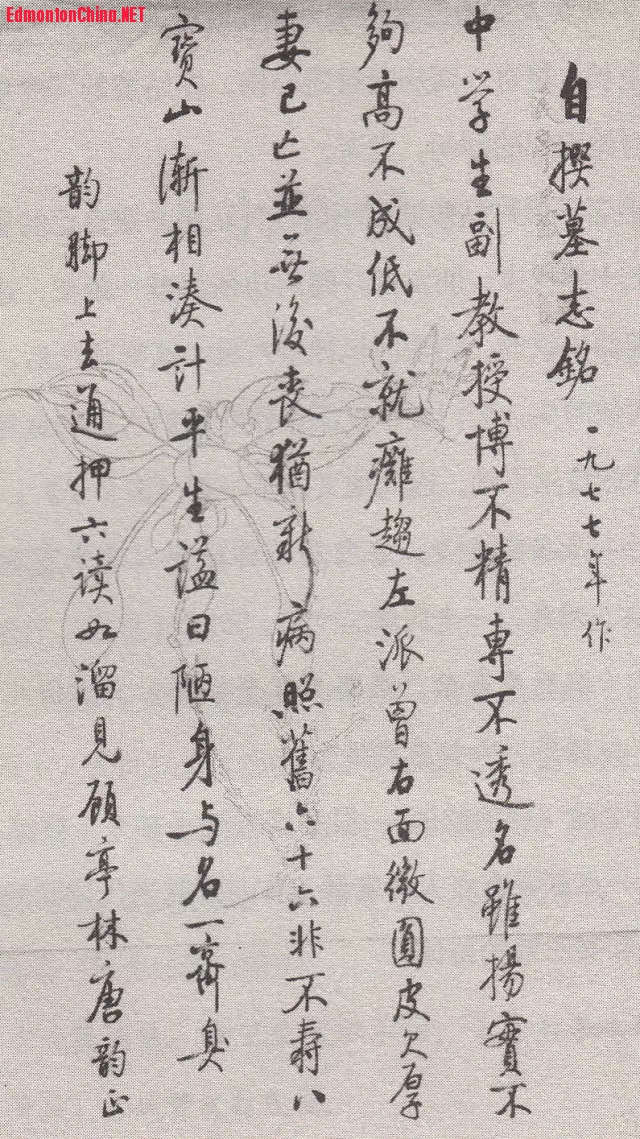 EdmontonChina.NET
自撰墓志銘 一九七七年作
中学生副教授博不精專不透名雖揚實不
夠高不成低不就癱趨左派曾右面微圓皮欠厚
妻已亡並無後喪猶新病照舊六十六非不壽八
寶山漸相湊計平生謚曰陋身与名一齊臭
韵脚上去通押六读如溜見顾亭林唐韵正